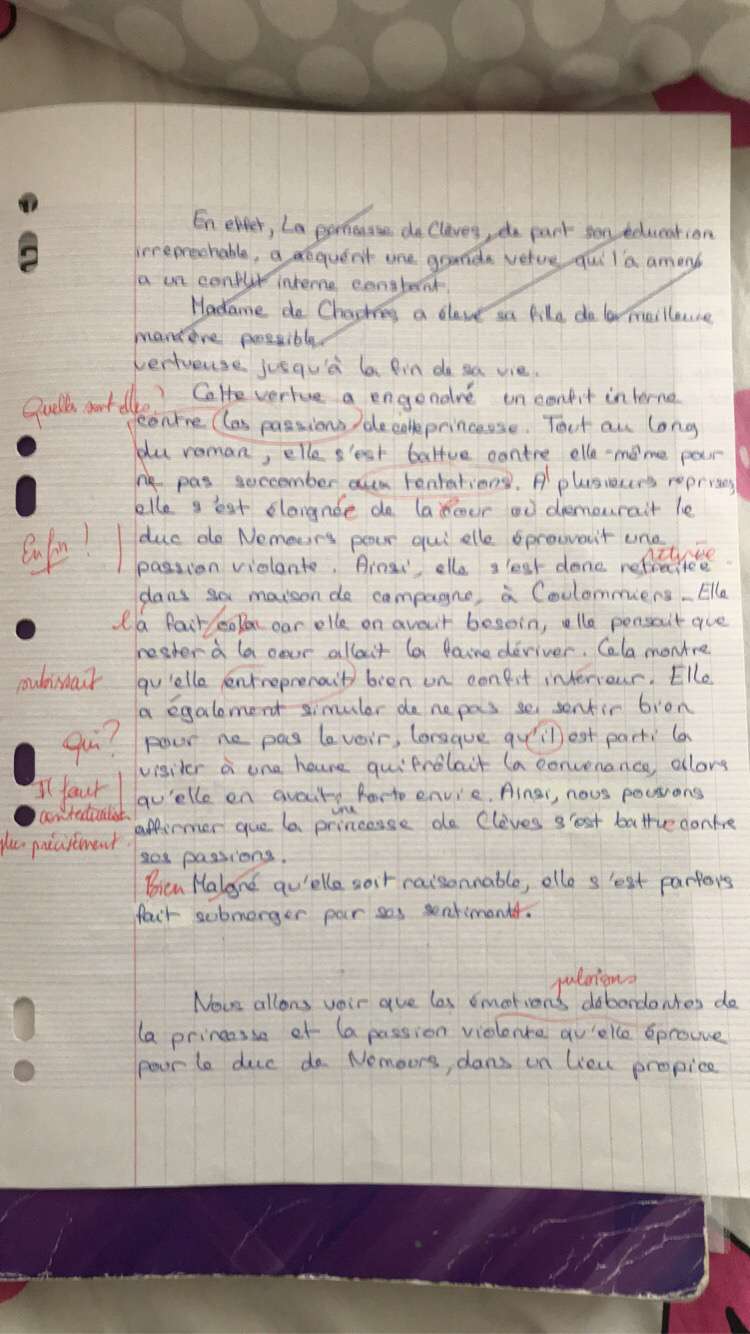 En effet, La princesse de Clèves, de part son éducation
irreprechable, a acquérit une grande vetue qui l'a amené
a un conflit interne constant.
Madame de Chartres a élevé sa fille de la meilleure
manière possible.
vertueuse jusqu'à la fin de sa vie.
Quelles sont elles ? Cette vertue a engendré un confit interne
contre les passions de cette princesse. Tout au long
du roman, elle s'est battue contre elle-même pour
ne pas succomber aux tentations. A plusieurs reprises,
elle s'est éloignée de la cour où demeurait le
Enfin ! duc de Nemours pour qui elle éprouvait une
retirée
passion violante. Ainsi, elle s'est donc retraitée
dans sa maison de campagne, à Coulommiers. Elle
l'a fait cela car elle en avait besoin, elle pensait que
rester à la cour allait la faire dériver. Cela montre
subissait qu'elle entreprenait bien un confit intérieur. Elle
a également simuler de ne pas se sentir bien
Qui ? pour ne pas le voir, lorsque qu'il est parti la
visiter à une heure qui frôlait la convenance, alors
Il faut qu'elle en avait une forte envie. Ainsi, nous pouvons
contextualiser affirmer que la princesse de Clèves s'est battue contre
plus précisément. ses passions.
Bien Malgré qu'elle soit raisonnable, elle s'est parfois
fait submerger par ses sentiments.
pulsions
Nous allons voir que les émotions débordantes de
la princesse et la passion violente qu'elle éprouve
pour le duc de Nemours, dans un lieu propice